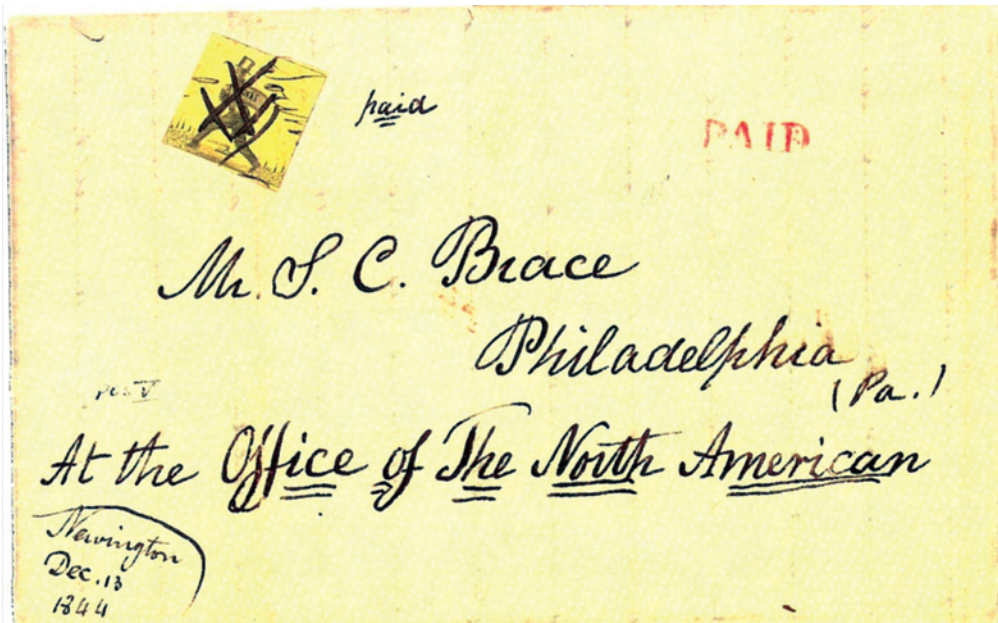 paid
PAID
Mr. S. C. Brace
Philadelphia
(Pa.)
At the Office of The North American
Newington
Dec. 13
1844